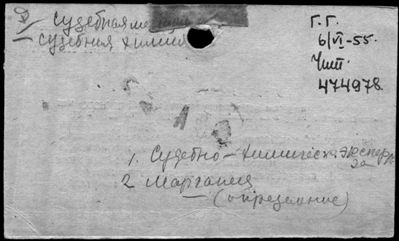 Судебная медици
Судебная химия
Г. Г.
6/VI-55.
Чит.
474978
1. Судебно-химическ. эксперт
за
2 Марганец
— (определение)